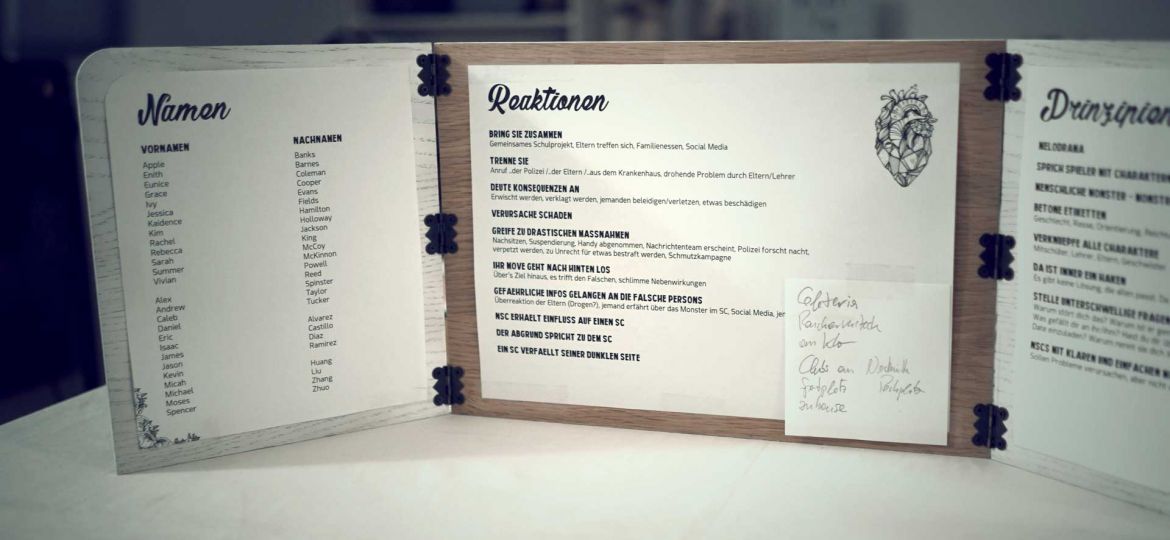 Namen
VORNAMEN
Apple
Enith
Eunice
Grace
Ivy
Jessica
Kaidence
Kim
Rachel
Rebecca
Sarah
Summer
Vivian
Alex
Andrew
Caleb
Daniel
Eric
Isaac
James
Jason
Kevin
Micah
Michael
Moses
Spencer
NACHNAMEN
Banks
Barnes
Coleman
Cooper
Evans
Fields
Hamilton
Holloway
Jackson
King
McCoy
McKinnon
Powell
Reed
Spinster
Taylor
Tucker
Alvarez
Castillo
Diaz
Ramirez
Huang
Liu
Zhang
Zhuo
Reaktionen
BRING SIE ZUSAMMEN
Gemeinsames Schulprojekt, Eltern treffen sich, Familienessen, Social Media
TRENNE SIE
Anruf ..der Polizei /..der Eltern /..aus dem Krankenhaus, drohende Problem durch Eltern/Lehrer
DEUTE KONSEQUENZEN AN
Erwischt werden, verklagt werden, jemanden beleidigen/verletzen, etwas beschädigen
VERURSACHE SCHADEN
GREIFE ZU DRASTISCHEN MASSNAHMEN
Nachsitzen, Suspendierung, Handy abgenommen, Nachrichtenteam erscheint, Polizei forscht nacht,
verpetzt werden, zu Unrecht für etwas bestraft werden, Schmutzkampagne
IHR MOVE GEHT NACH HINTEN LOS
Über's Ziel hinaus, es trifft den Falschen, schlimme Nebenwirkungen
GEFAEHRLICHE INFOS GELANGEN AN DIE FALSCHE PERSONS
Überreaktion der Eltern (Drogen?), jemand erfährt über das Monster im SC, Social Media, jer
NSC ERHAELT EINFLUSS AUF EINEN SC
DER ABGRUND SPRICHT ZU DEM SC
EIN SC VERFAELLT SEINER DUNKLEN SEITE
Cafeteria
am Klo
Clubs am
zuhause
Prinzipien
MELODRAMA
SPRICH SPIELER MIT CHARAKTERN
MENSCHLICHE MONSTER - MONSTE
BETONE ETIKETTEN
Geschlecht, Rasse, Orientierung, Reichtu
VERKNUEPFE ALLE CHARAKTERE
Mitschüler, Lehrer, Eltern, Geschwister
DA IST IMMER EIN HAKEN
Es gibt keine Lösung, die allen passt. Da
STELLE UNTERSCHWELLIGE FRAGEN
Warum stört dich das? Warum ist er
Was gefällt dir an ihr/ihm? Hast du dir
Date einzuladen? Warum nennt sie dich
NSCS MIT KLAREN UND EINFACHEN
Sollen Probleme verursachen, aber nicht